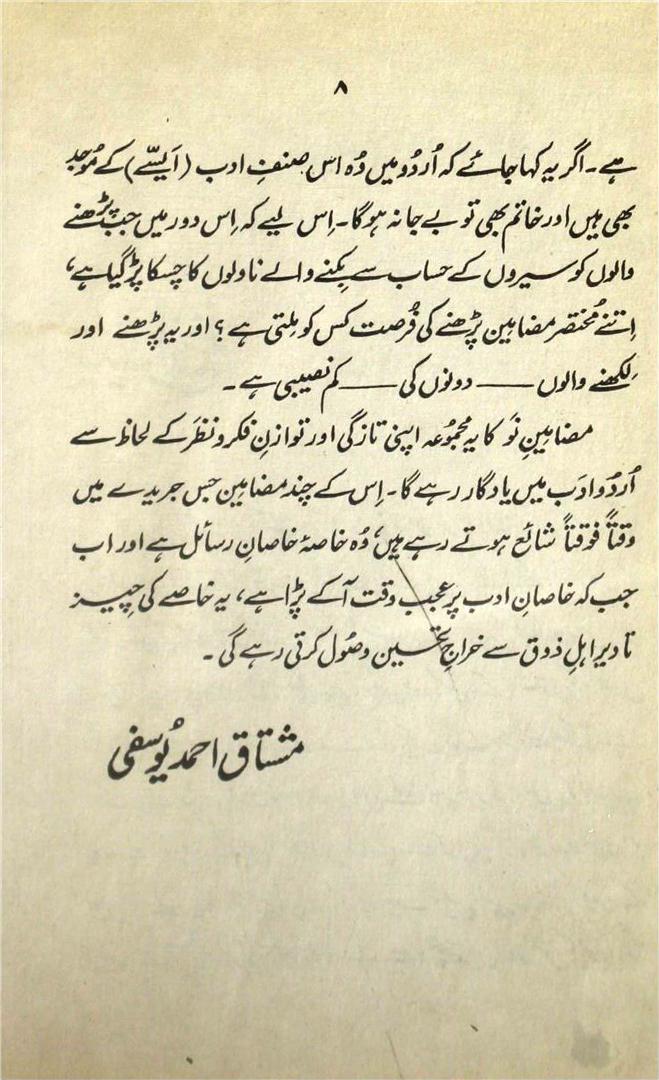 ۸
ہے ۔ اگر یہ کہا جائے کہ اُردُو میں وُہ اس صنفِ ادب (اَیسّے) کے مُوجد
بھی ہیں اور خاتم بھی تو بے جا نہ ہو گا ۔ اِس لیے کہ اِس دور میں جب پڑھنے
والوں کو سیروں کے حساب سے بِکنے والے ناولوں کا چسکا پڑ گیا ہے،
اِتنے مُختصر مضامین پڑھنے کی فُرصت کس کو مِلتی ہے؟ اور یہ پڑھنے اور
لِکھنے والوں —— دونوں کی —— کم نصیبی ہے ۔
مضامینِ نَو کا یہ مجمُوعہ اپنی تازگی اور توازنِ فکر و نظَر کے لحاظ سے
اُردُو ادَب میں یادگار رہے گا ۔ اِس کے چند مضامین جس جریدے میں
وقتاً فوقتاً شائع ہوتے رہے ہیں، وُہ خاصۂ خاصانِ رسائل ہے اور اب
جب کہ خاصانِ ادب پر عجب وقت آ کے پڑا ہے، یہ خاصے کی چیز
تا دیر اہلِ ذوق سے خراجِ تحسین وصُول کرتی رہے گی ۔
مشتاق احمد یُوسفی